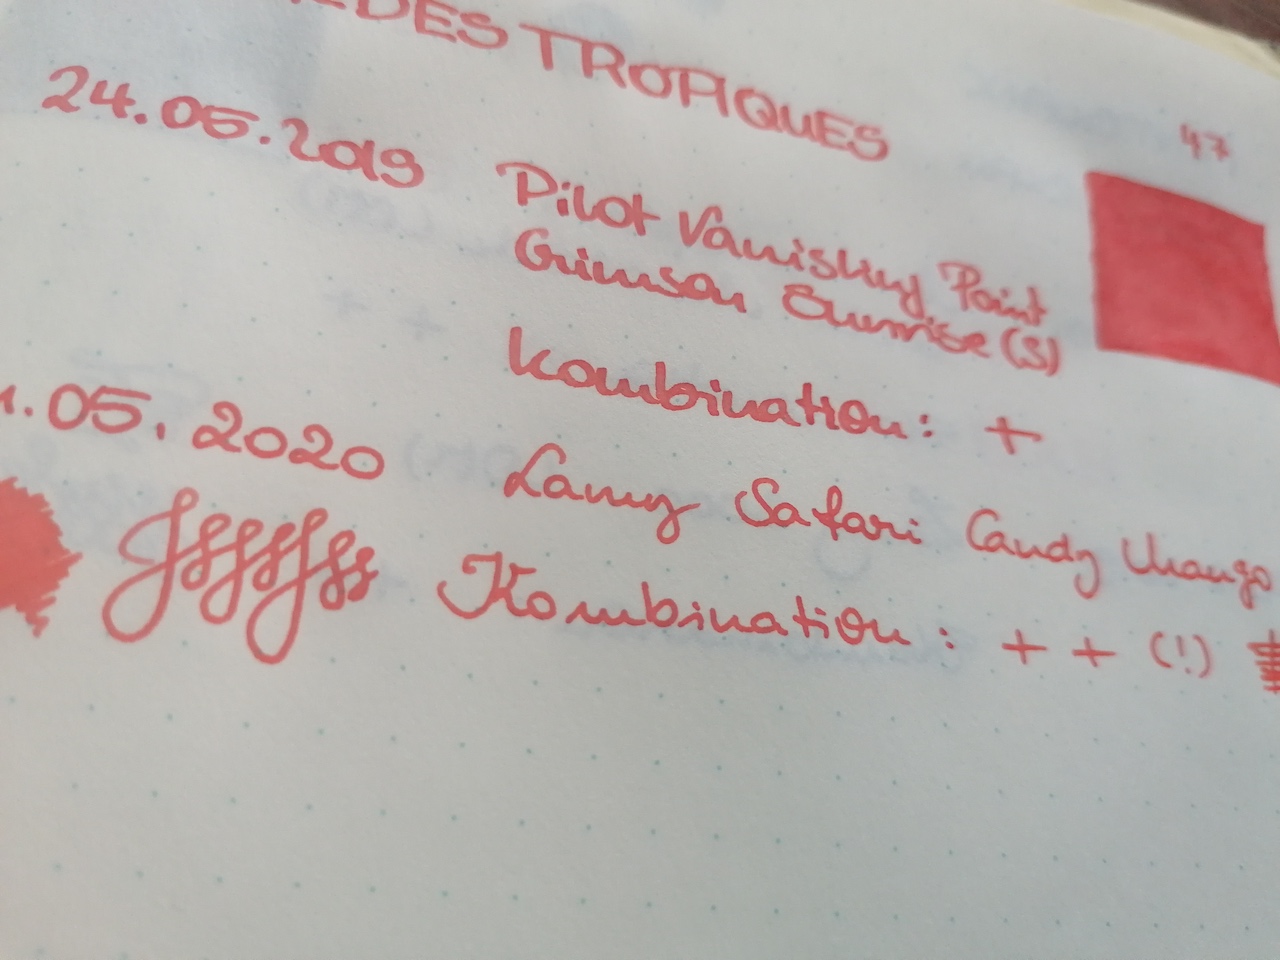 DES TROPIQUES
47
24.05.2019 Pilot Vanishing Point
Crimson Sunrise (S)
Kombination: +
1.05.2020 Lamy Safari Candy Mango
Kombination: + + (!)